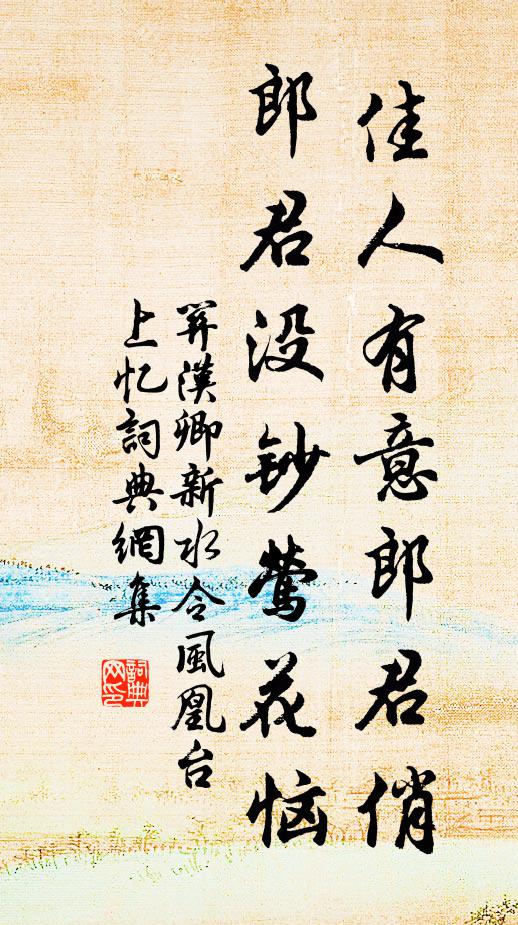 佳人有意郎君俏
郎君没钞莺花恼
关漢卿新水令風凰台
上忆詞典網集
詞典
网印